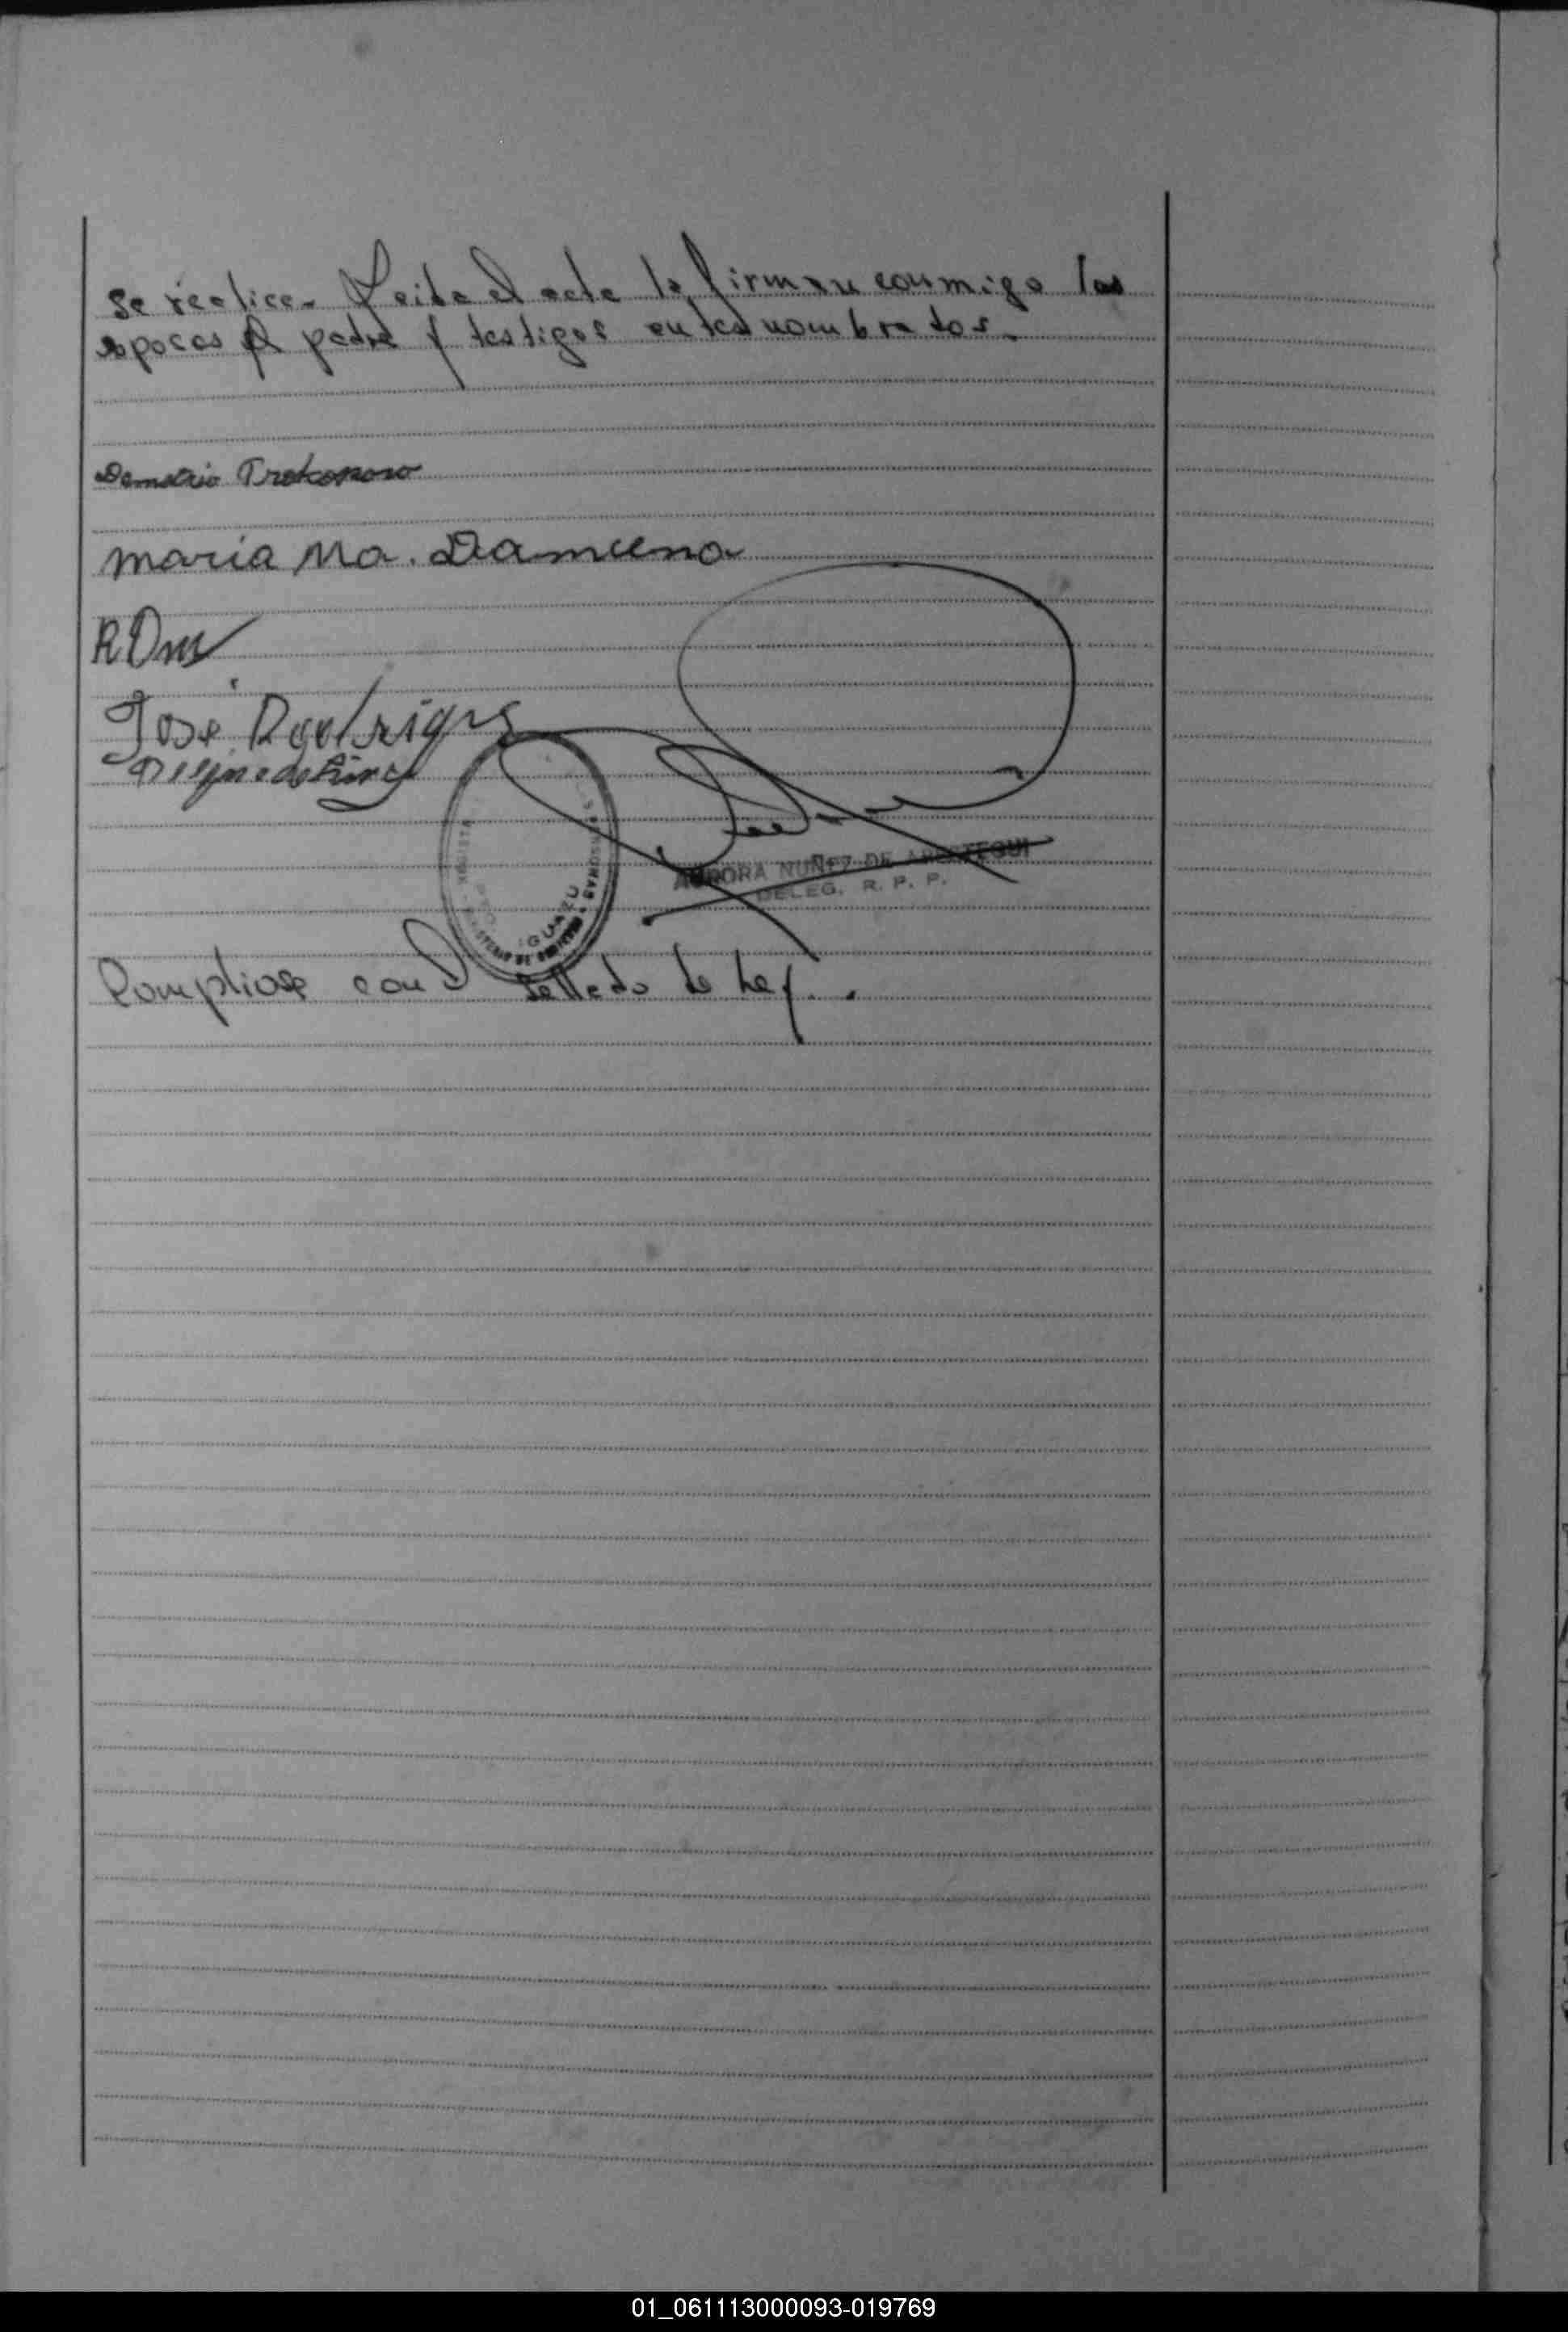 se realice.- Leida el acta la firman conmigo los
esposos el padre y testigos antes nombrados.-
Demetrio
maria Ma. Damcena
RDm
José Rodrigues
AURORA NUÑEZ DE ARESTEGUI
DELEG. R. P. P.
IGUAZU
Compliose con el sellado de Ley..
01_061113000093-019769